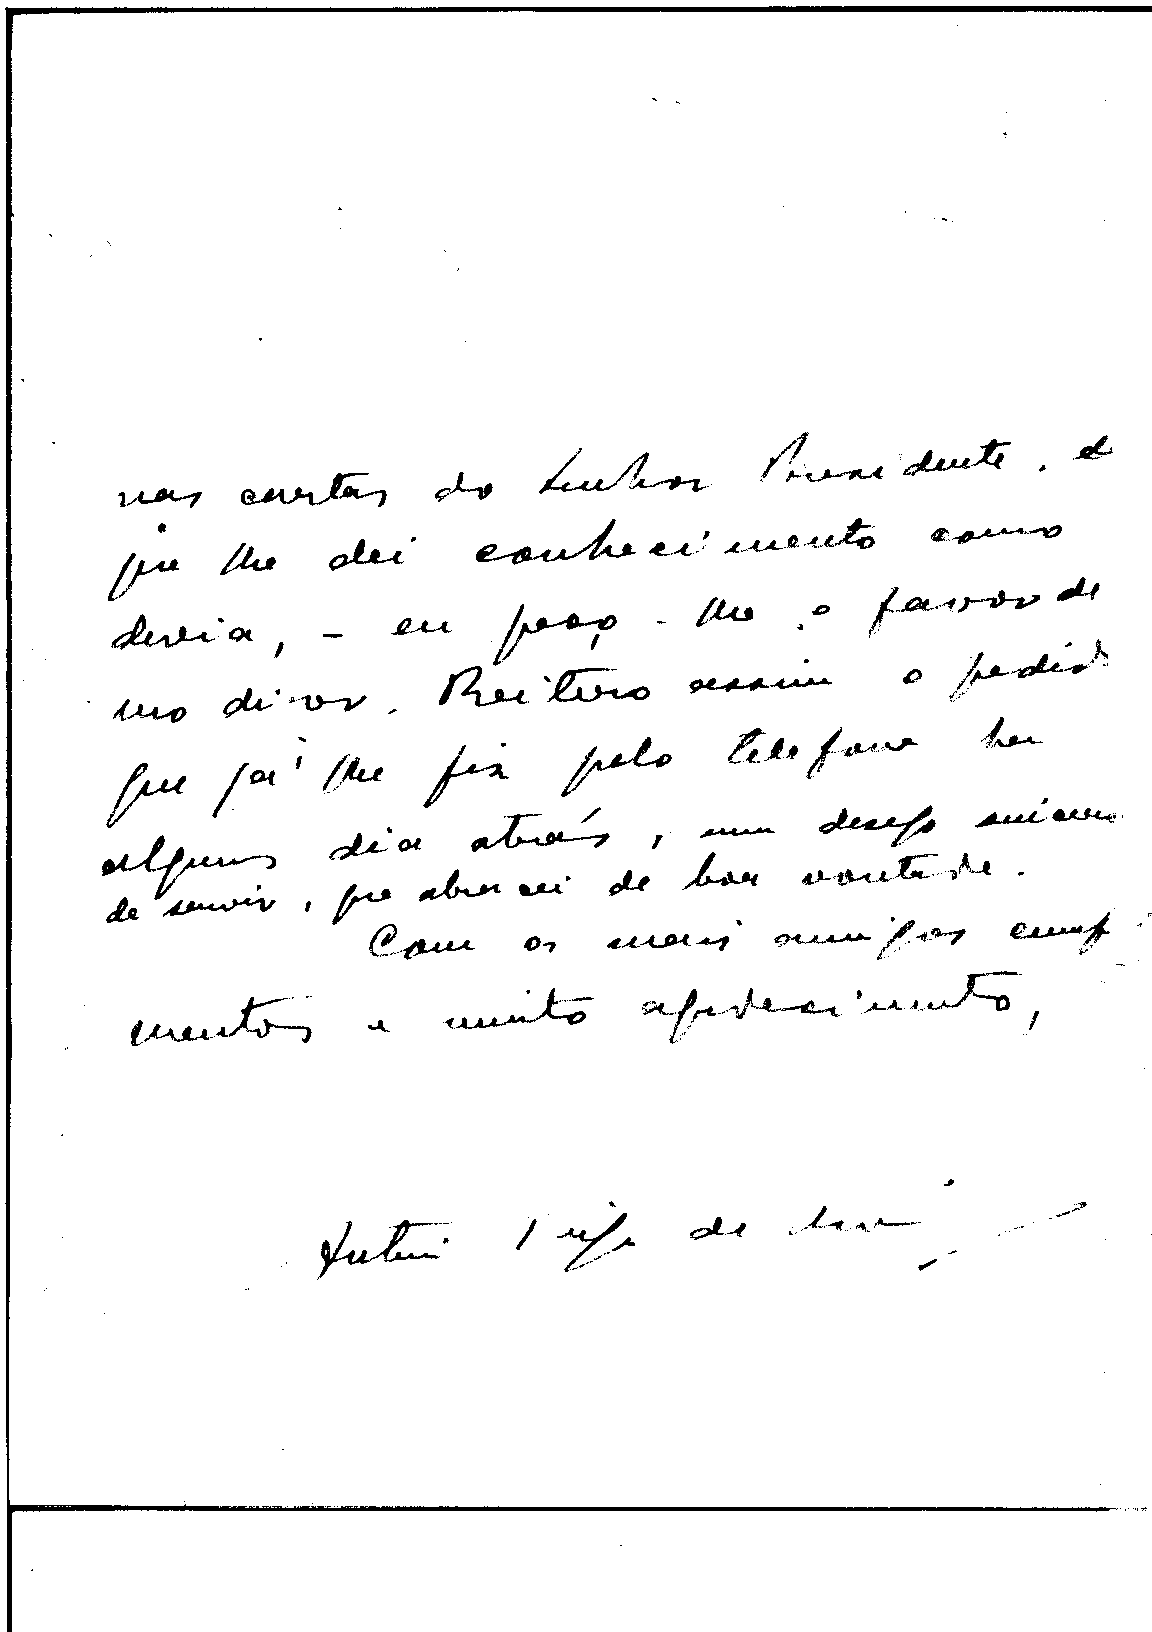 nas cartas do Senhor Presidente, d
que lhe dei conhecimento como
devia, - eu peço-lhe o favor de
mo dizer. Reitero assim o pedid
que já lhe fiz pelo telefone há
alguns dia atrás, num desejo sincero
de servir, que abracei de boa vontade.
Com os mais amigos cump
mentos e muito agradecimento,
de